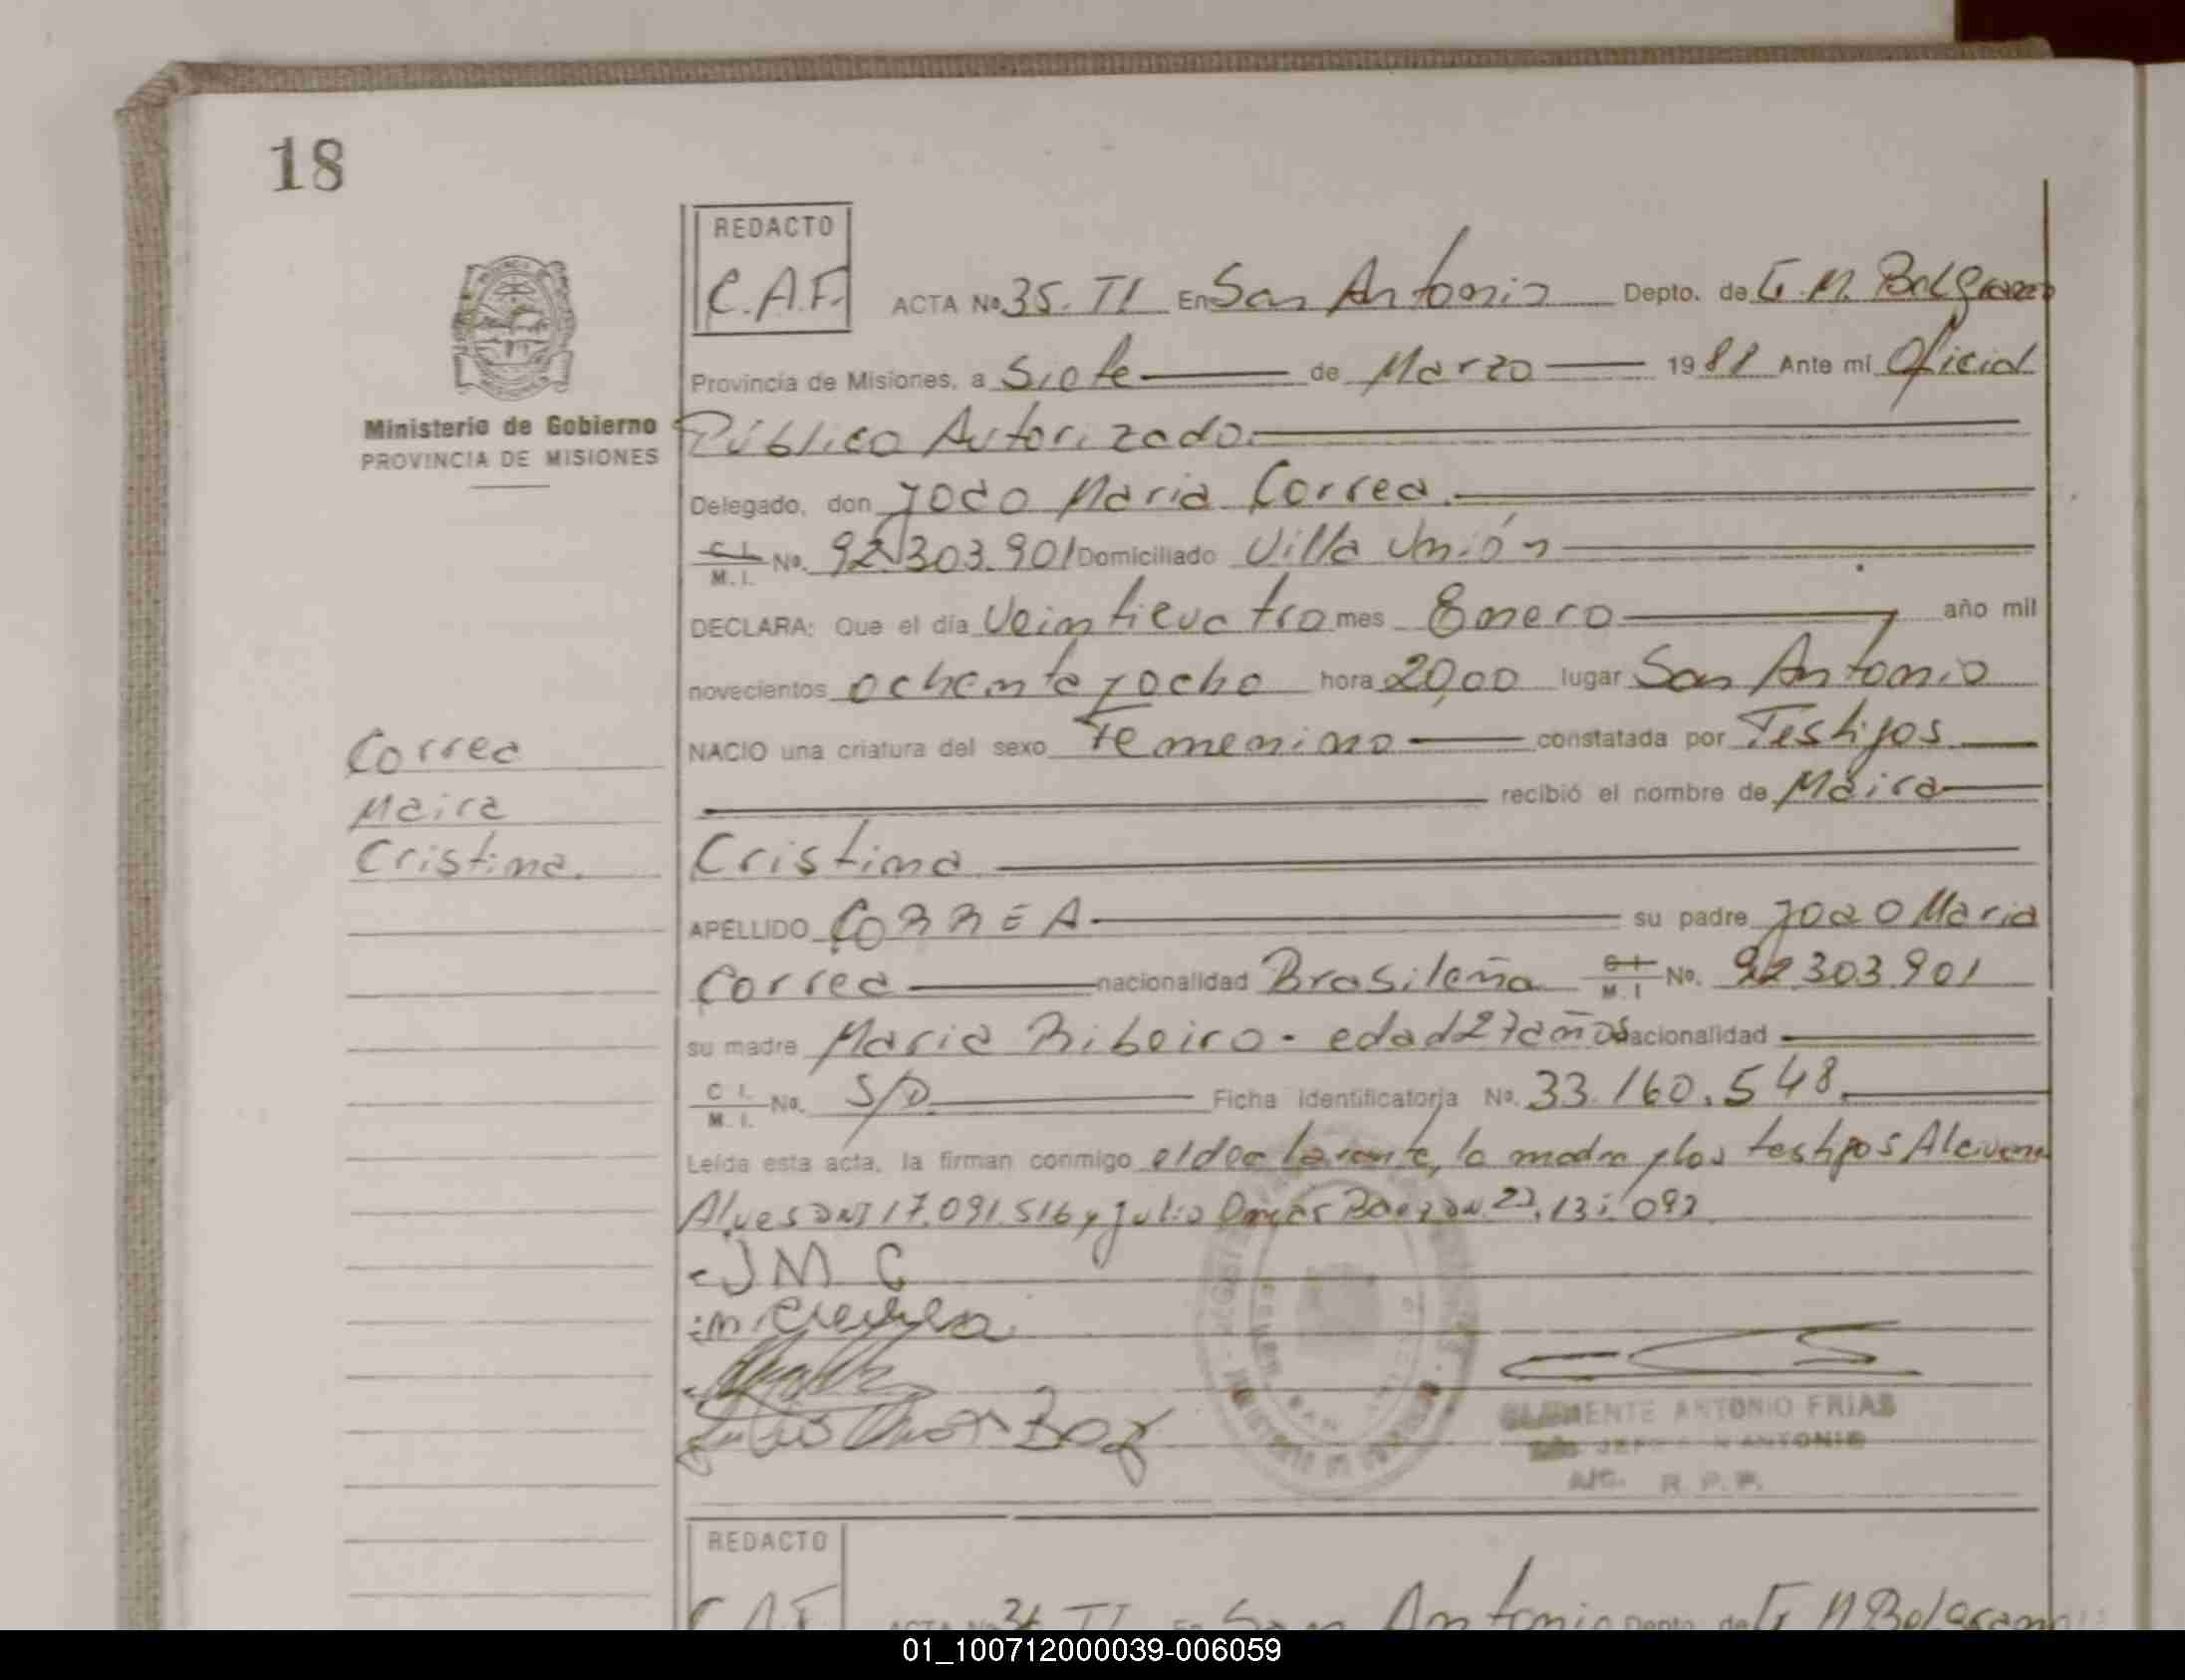 18
REDACTO
C.A.F.
ACTA No. 35. TI En San Antonio Depto. de G. M. Belgrano
Provincia de Misiones, a Siete de Marzo 1988 Ante mí Oficial
Ministerio de Gobierno
PROVINCIA DE MISIONES
Público Autorizado.
Delegado, don Joao Maria Correa.
C. I. M. I. No. 92.303.901 Domiciliado Villa Unión
DECLARA: Que el día Veinticuatro mes Enero año mil
novecientos ochenta y ocho hora 20,00 lugar San Antonio
NACIO una criatura del sexo Femenino constatada por Testigos
recibió el nombre de Maira
Correa
Maira
Cristina.
Cristina
APELLIDO CORREA su padre Joao Maria
Correa nacionalidad Brasileña C I M. I No. 92.303.901
su madre Maria Ribeiro - edad 27 años nacionalidad
C I. M. I. No. S/D. Ficha identificatoria No. 33.160.548.
Leída esta acta, la firman conmigo el declarante, la madre y los testigos
Alves DNI 17.091.516 y Julio Omar
J M C
CLEMENTE ANTONIO FRIAS
SAN ANTONIO
A/C. R. P. P.
REDACTO
C.A.F.
ACTA No. 36 TI En San Antonio Depto. de G M Belgrano
01_100712000039-006059